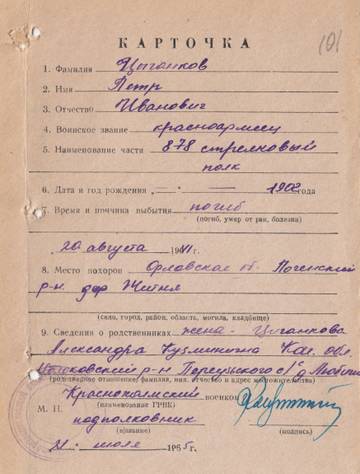 101
КАРТОЧКА
1. Фамилия Цыганков
2. Имя Петр
3. Отчество Иванович
4. Воинское звание красноармеец
5. Наименование части 878 стрелковый
полк
6. Дата и год рождения — . — 1902 года
7. Время и причина выбытия погиб
(погиб, умер от ран, болезни)
20 августа 1941 г.
8. Место похорон Орловская об. Погенский
р-н дер Житня
(село, город, район, область, могила, кладбище)
9. Сведения о родственниках жена - Цыганкова
Александра Кузьминична Кал. обл.
р-н с/с д.
(родственное отношение, фамилия, имя, отчество и адрес местожительства)
Краснохолмский военком
М. П. (наименование ГРВК)
подполковник
(звание) (подпись)
21 - июля 1955 г.